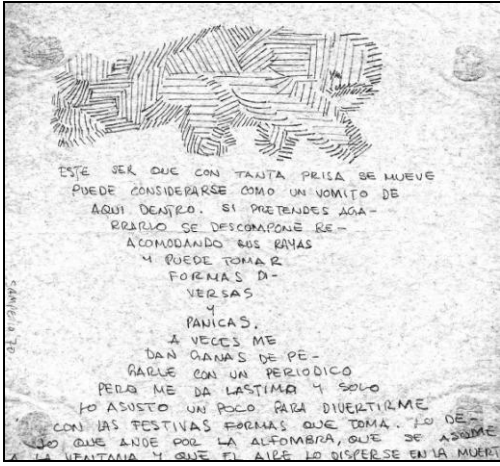 ESTE SER QUE CON TANTA PRISA SE MUEVE
PUEDE CONSIDERARSE COMO UN VOMITO DE
AQUI DENTRO. SI PRETENDES AGA-
RRARLO SE DESCOMPONE RE-
ACOMODANDO SUS RAYAS
Y PUEDE TOMAR
FORMAS DI-
VERSAS
Y
PANICAS.
A VECES ME
DAN GANAS DE PE-
GARLE CON UN PERIODICO
PERO ME DA LASTIMA Y SOLO
LO ASUSTO UN POCO PARA DIVERTIRME
CON LAS FESTIVAS FORMAS QUE TOMA. LO DE-
JO QUE ANDE POR LA ALFOMBRA, QUE SE ASOME
A LA VENTANA Y QUE EL AIRE LO DISPERSE EN LA MUER